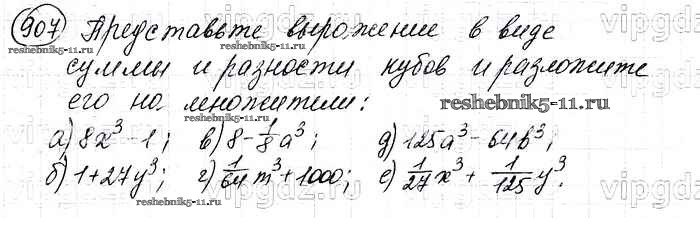 907 Представьте выражение в виде
суммы и разности кубов и разложите
его на множители:
а) 8x³ - 1; в) 8 - 1/8 a³; д) 125a³ - 64b³;
б) 1 + 27y³; г) 1/64 m³ + 1000; е) 1/27 x³ + 1/125 y³.
www.reshebnik5-11.ru
reshebnik5-11.ru
reshebnik5-11.ru
reshebnik5-11.ru
vipgdz.ru
vipgdz.ru
vipgdz.ru